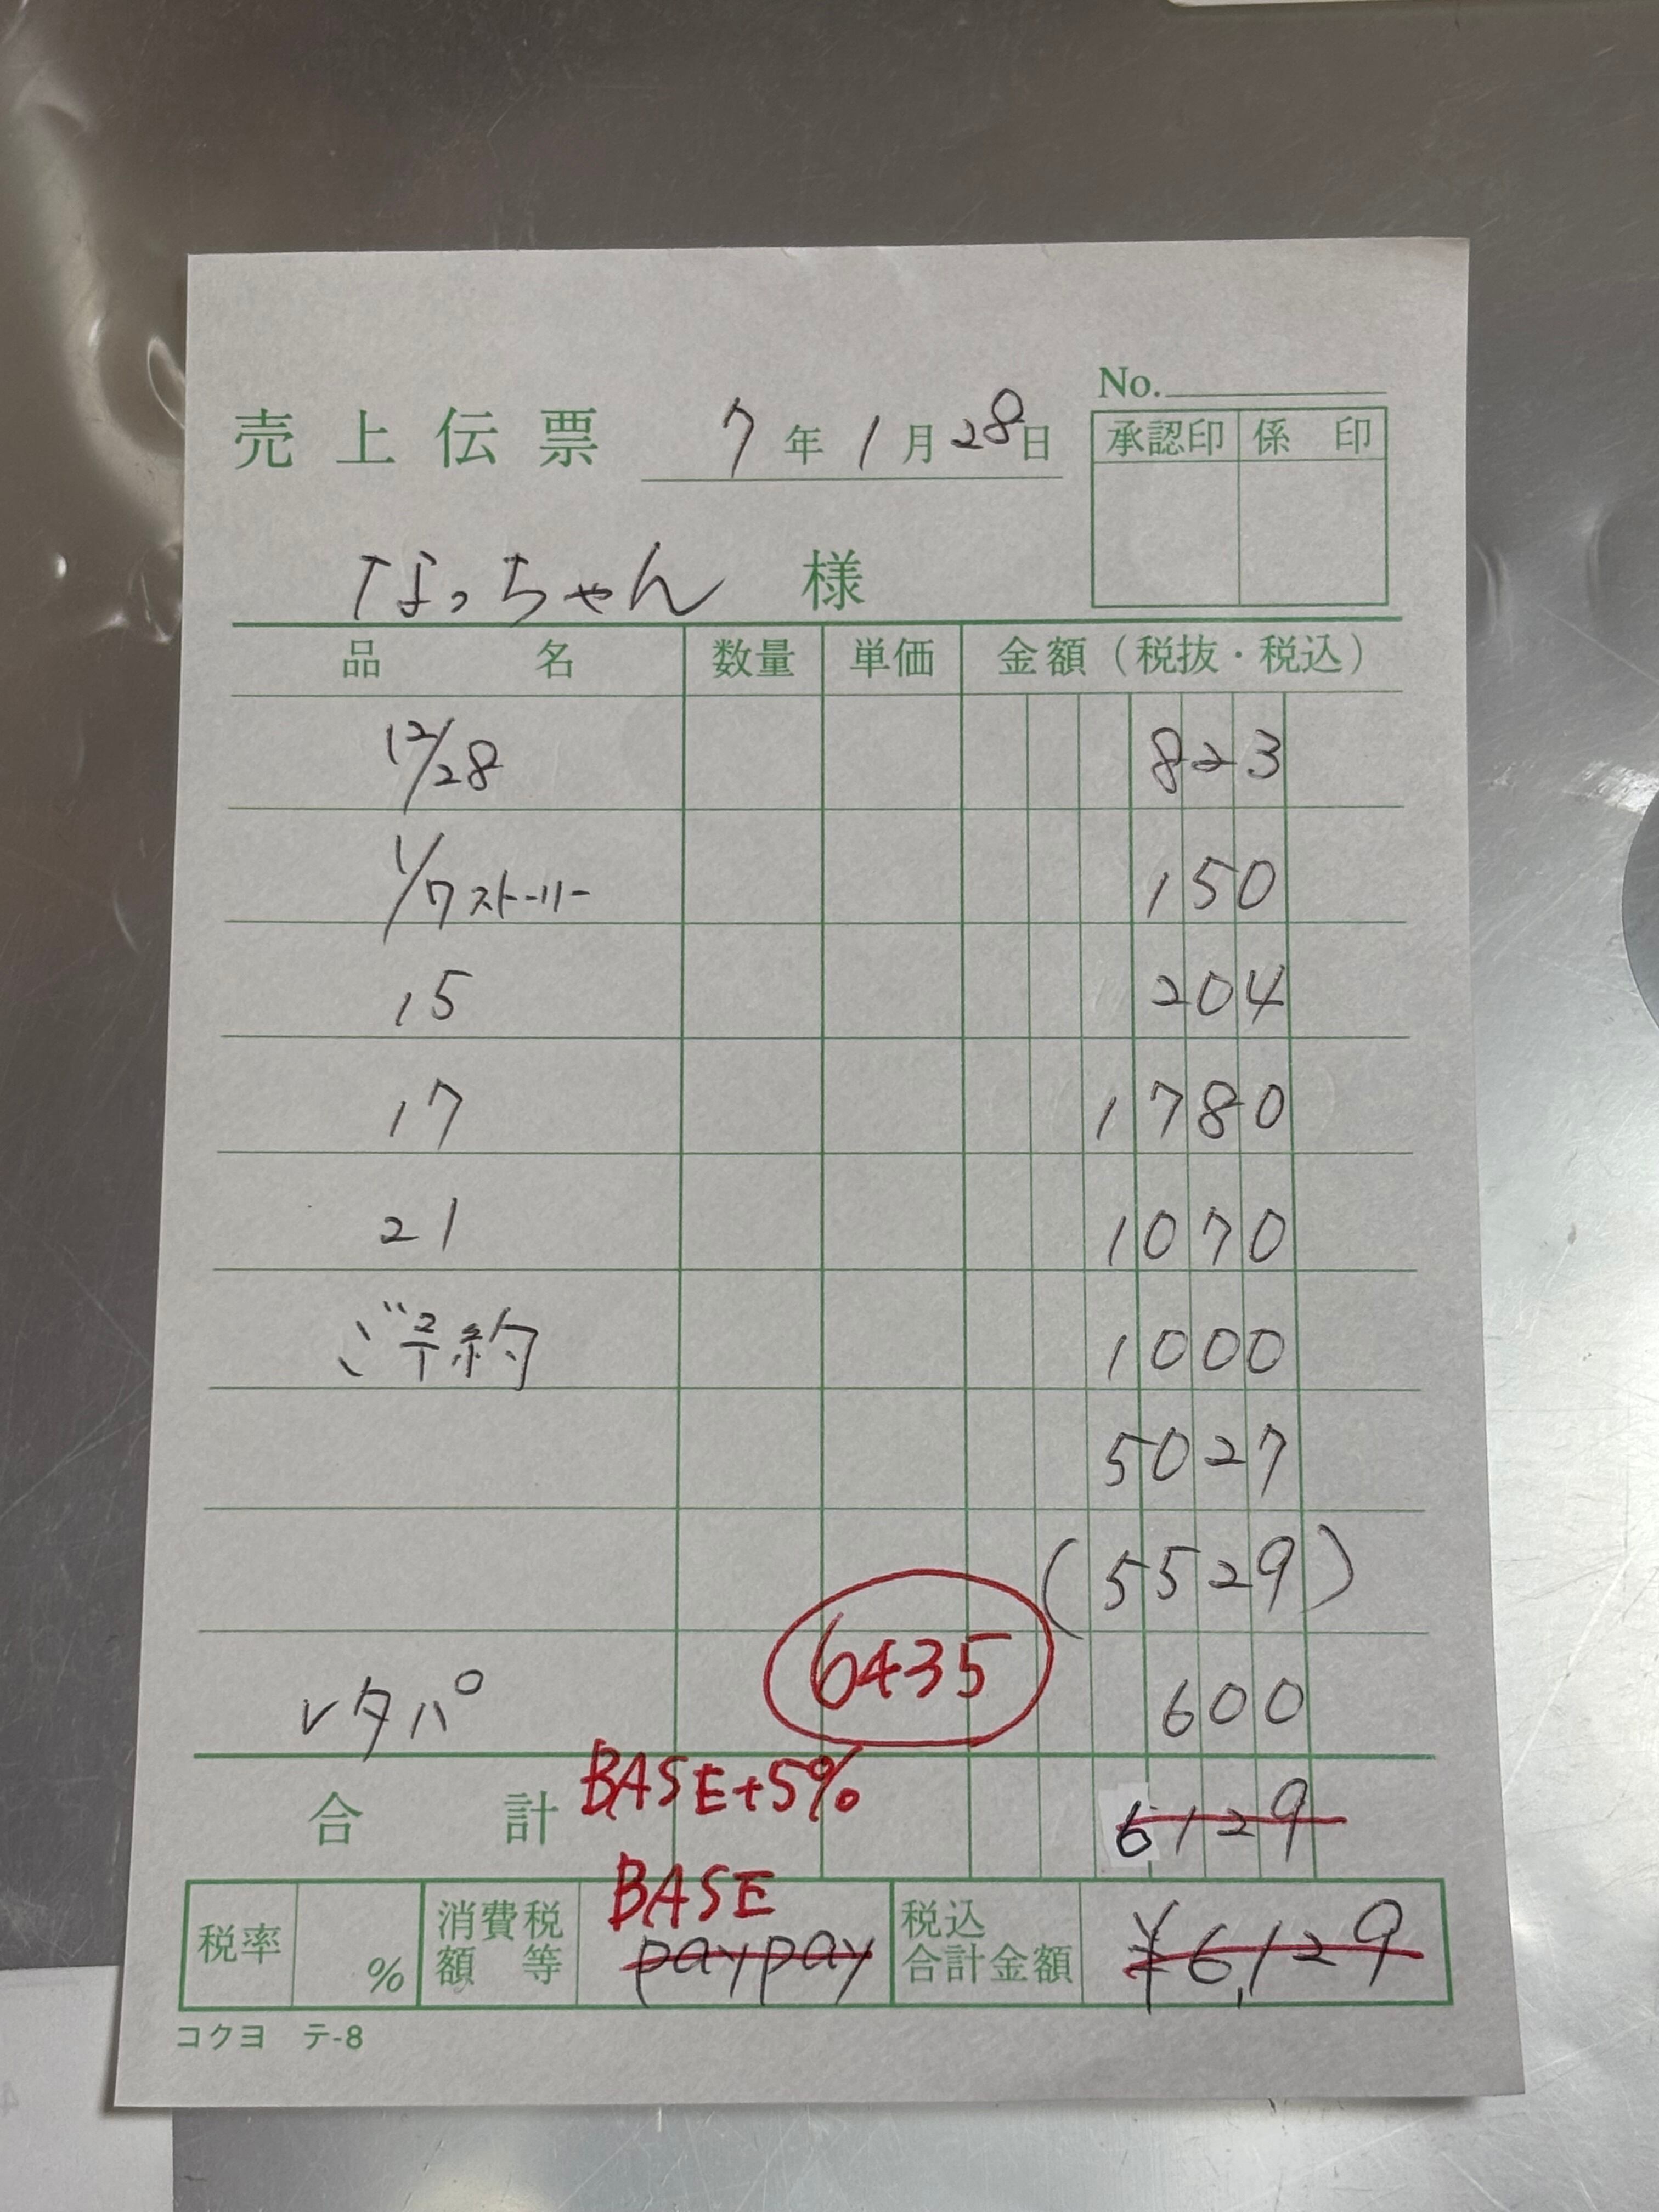 No.
売上伝票 7年1月28日
承認印 係印
なっちゃん 様
品名 数量 単価 金額(税抜・税込)
12/28 823
1/7ストーリー 150
15 204
17 1780
21 1070
ご予約 1000
5027
(5529)
6435
レタパ 600
BASE+5%
合計 6129
BASE
税率 % 消費税額等 paypay 税込合計金額 ¥6,129
コクヨ テ-8